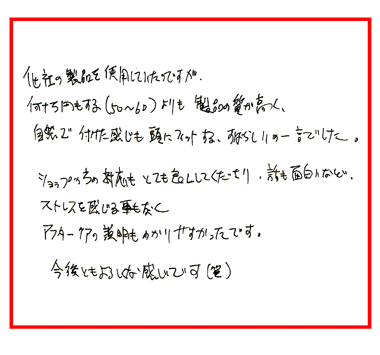 他社の製品を使用していたのですが、
何十万円もする(50～60)よりも製品の質が高く、
自然で付けた感じも頭にフィットする、素晴らしいの一言でした。
ショップの方の対応もとても良くしてくださり、話も面白いなど、
ストレスを感じる事もなく
アフターケアの説明もわかりやすかったです。
今後ともよろしくな感じです(笑)